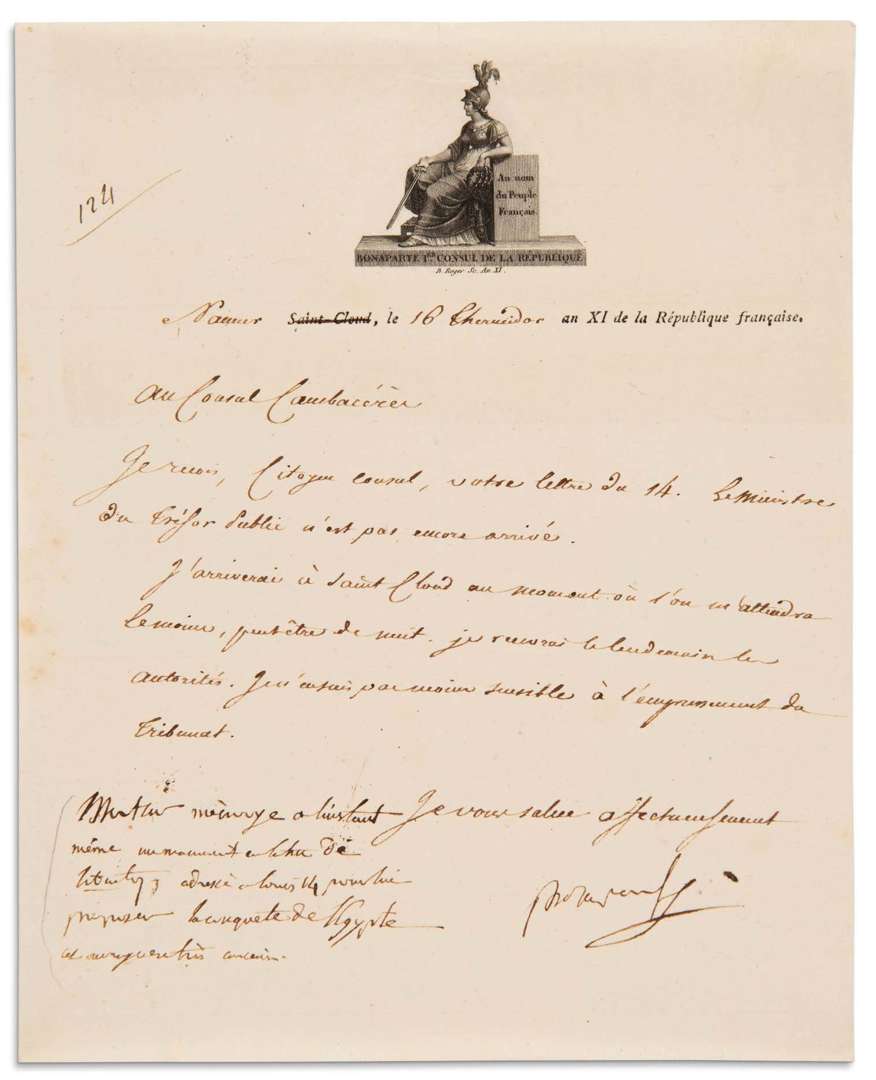 124
Au nom
du Peuple
Français.
BONAPARTE 1er CONSUL DE LA RÉPUBLIQUE
B. Roger Sc. An XI.
Namur Saint-Cloud, le 16 Thermidor an XI de la République française.
Au Consul Cambacérès
Je reçois, Citoyen Consul, votre lettre du 14. Le Ministre
du Trésor Public n'est pas encore arrivé.
J'arriverai à Saint Cloud au moment où l'on m'attendra
le moins, peut être de nuit. je recevrai le lendemain les
autorités. Je n'en suis pas moins sensible à l'empressement du
Tribunat.
Je vous salue affectueusement
Mortier m'envoye a l'instant
même un manuscrit en latin de
Leibnitz adressé a Louis 14 pour lui
proposer la conquete de l'Egypte
cet ouvrage est très curieux.